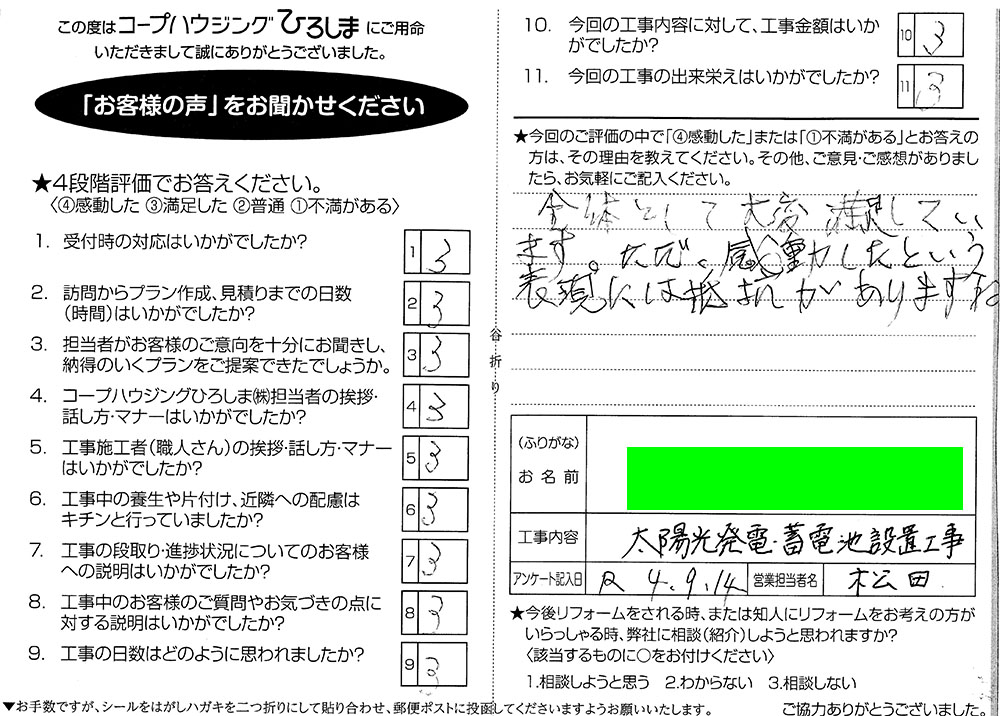 この度はコープハウジングひろしまにご用命
いただきまして誠にありがとうございました。
「お客様の声」をお聞かせください
★4段階評価でお答えください。
〈④感動した ③満足した ②普通 ①不満がある〉
1. 受付時の対応はいかがでしたか?
1 3
2. 訪問からプラン作成、見積りまでの日数
(時間)はいかがでしたか?
2 3
3. 担当者がお客様のご意向を十分にお聞きし、
納得のいくプランをご提案できたでしょうか。
3 3
4. コープハウジングひろしま㈱担当者の挨拶・
話し方・マナーはいかがでしたか?
4 3
5. 工事施工者(職人さん)の挨拶・話し方・マナー
はいかがでしたか?
5 3
6. 工事中の養生や片付け、近隣への配慮は
キチンと行っていましたか?
6 3
7. 工事の段取り・進捗状況についてのお客様
への説明はいかがでしたか?
7 3
8. 工事中のお客様のご質問やお気づきの点に
対する説明はいかがでしたか?
8 3
9. 工事の日数はどのように思われましたか?
9 3
▼お手数ですが、シールをはがしハガキを二つ折りにして貼り合わせ、郵便ポストに投函してくださいますようお願いいたします。
谷折り
10. 今回の工事内容に対して、工事金額はいか
がでしたか?
10 3
11. 今回の工事の出来栄えはいかがでしたか?
11 3
★今回のご評価の中で「④感動した」または「①不満がある」とお答えの
方は、その理由を教えてください。その他、ご意見・ご感想がありまし
たら、お気軽にご記入ください。
全体として大変満足してい
ます。ただ、感動したという
表現には抵抗がありますね
(ふりがな)
お名前
工事内容 太陽光発電・蓄電池設置工事
アンケート記入日 R 4.9.14 営業担当者名 松田
★今後リフォームをされる時、または知人にリフォームをお考えの方が
いらっしゃる時、弊社に相談(紹介)しようと思われますか?
〈該当するものに○をお付けください〉
1.相談しようと思う 2.わからない 3.相談しない
ご協力ありがとうございました。